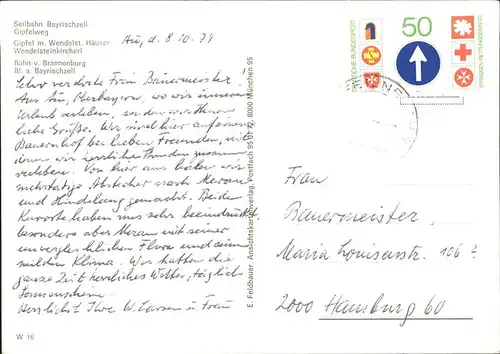 Seilbahn Bayrischzell
Gipfelweg
Gipfel m. Wendelst. Häuser
Wendelsteinkircherl
Bahn v. Brannenburg
Bl. a. Bayrischzell
Au, d. 8. 10. 79
Sehr verehrte Frau Bauermeister,
Aus Au, Oberbayern, wo wir unseren
Urlaub verleben, senden wir Ihnen
liebe Grüße. Wir sind hier auf einem
Bauernhof bei lieben Freunden, mit
denen wir herrliche Stunden zusammen
verleben. Von hier aus haben wir
mehrtätige Abstecher nach Meran
und Hindelang gemacht. Beide
Kurorte haben uns sehr beeindruckt
besonders aber Meran mit seiner
unvergleichlichen Flora und seinem
milden Klima. Wir hatten die
ganze Zeit herrliches Wetter, täglich
Sonnenschein.
Herzlichst Ihre W. Larsen u. Frau
W 16
E. Feldbauer Ansichtskartenverlag, Postfach 95 01 72, 8000 München 95
DEUTSCHE BUNDESPOST
50
STRASSEN-RETTUNGSDIENST
Frau
Bauermeister
Maria Louisenstr. 106
2000 Hamburg 60